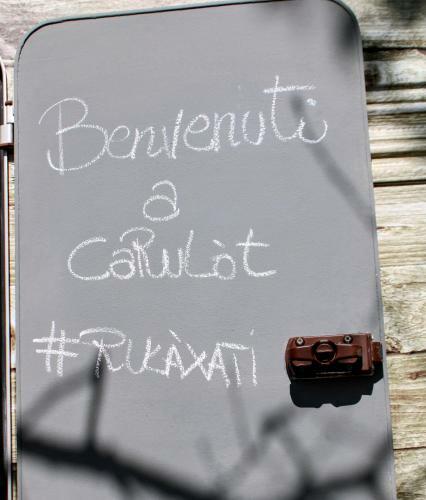 Benvenuti
a
CaRuLòt
#RUKÀXATI